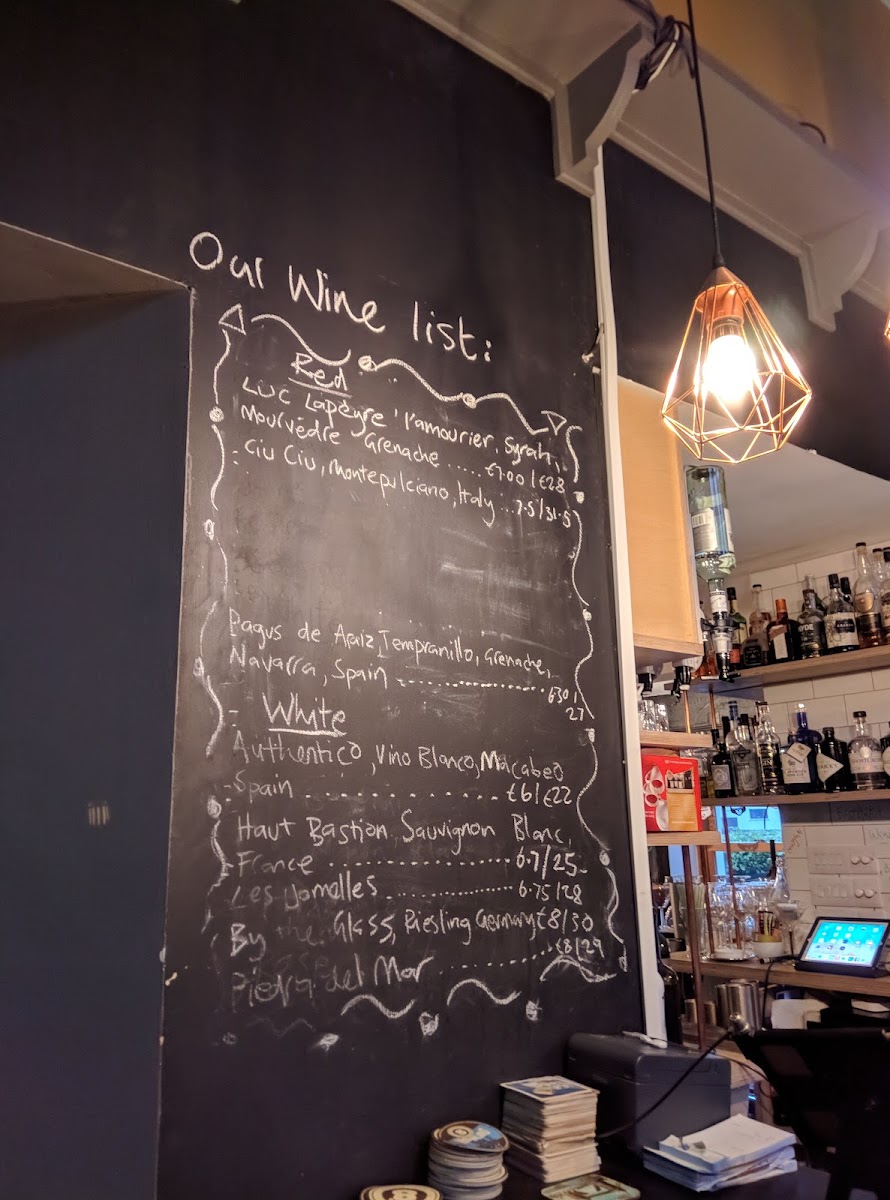 Our Wine list:
Red
Luc Lapeyre 'l'amourier, Syrah,
Mourvèdre Grenache ..... €7.00/€28
Ciu Ciu, Montepulciano, Italy ... 7.5/31.5
Pagus de Araiz Tempranillo, Grenache,
Navarra, Spain
27
- White
Authentico, Vino Blanco, Macabeo
Spain ........... €6/€22
Haut Bastion, Sauvignon Blanc,
France ............... 6.7/25
Les Jamelles ............ 6.75/28
By the Glass, Riesling Germany €8/30
Piedra del Mar .......... €8/29